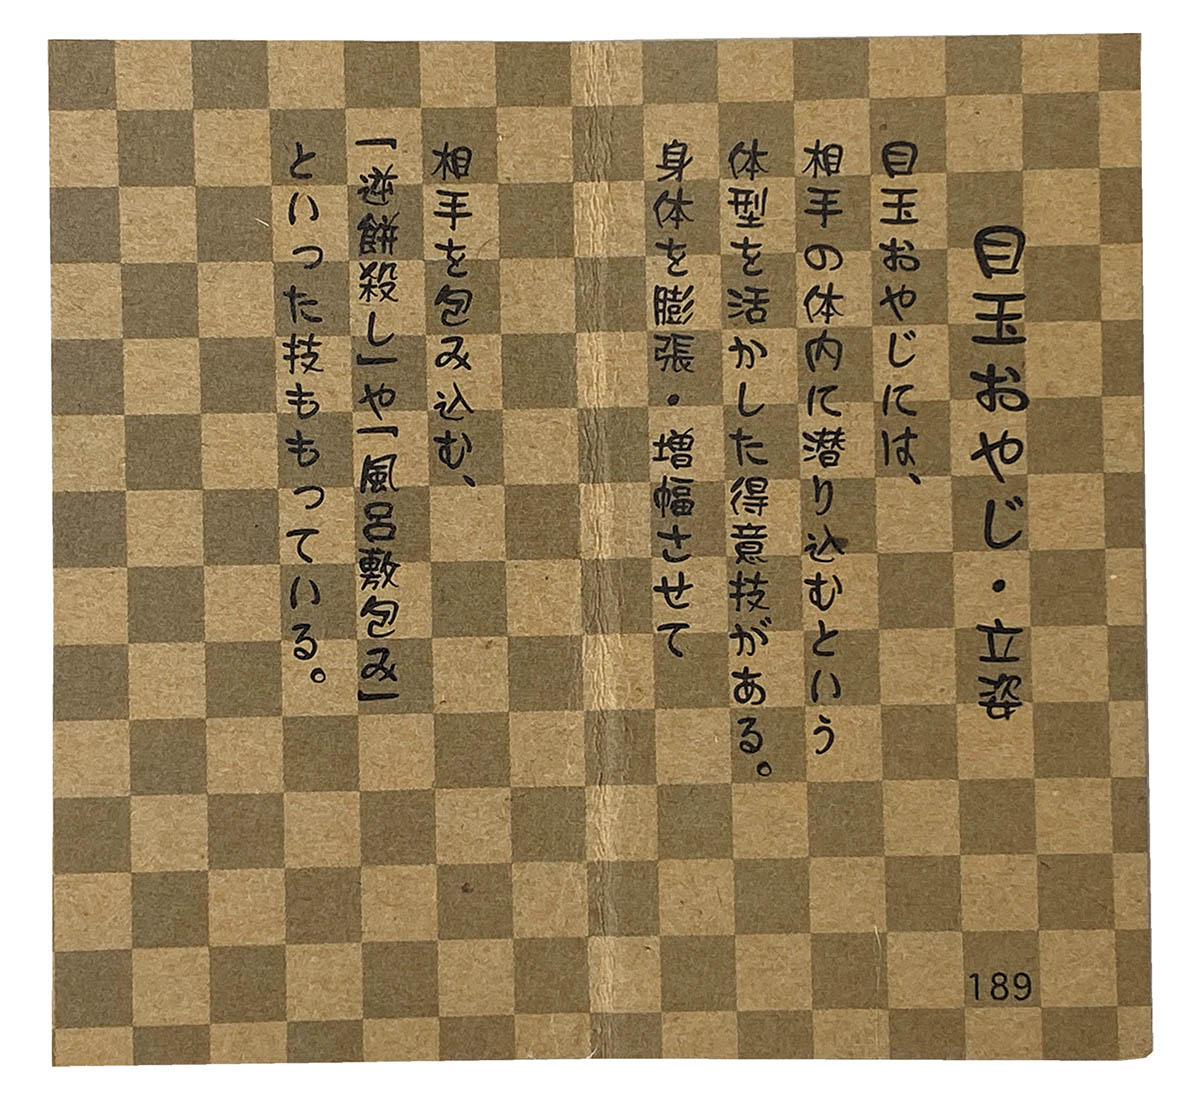 目玉おやじ・立姿
目玉おやじには、
相手の体内に潜り込むという
体型を活かした得意技がある。
身体を膨張・増幅させて
相手を包み込む、
「逆餅殺し」や「風呂敷包み」
といった技ももっている。
189